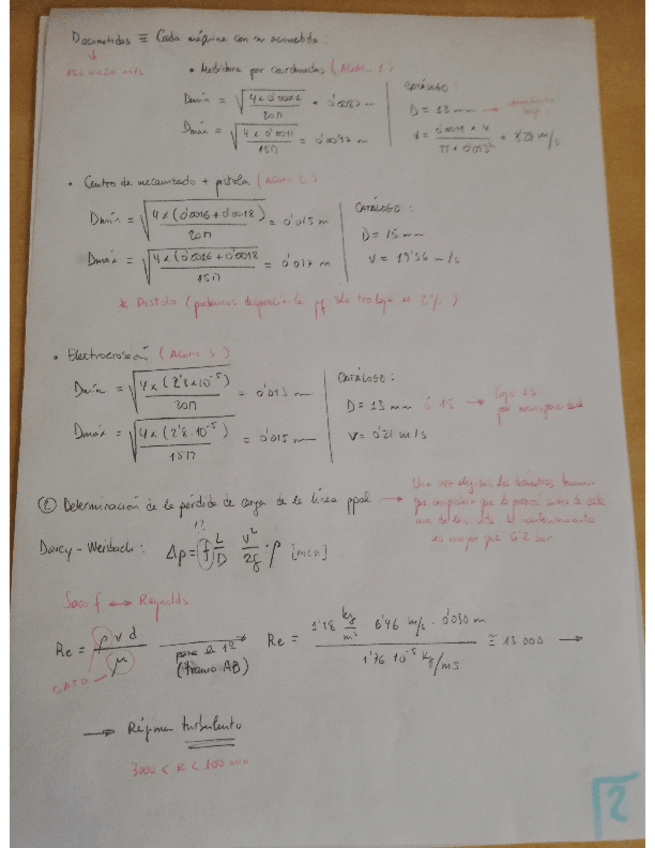 Dacometidas ≡ Cada máquina con su acometida.
15 < v < 20 m/s
• Medidora por coordenadas (Acom. 1)
Dmín = √(4 x 0'0011 / 20π) = 0'0083 m
Dmáx = √(4 x 0'0011 / 15π) = 0'0097 m
CATÁLOGO:
D = 13 mm →
V = 0'0011 x 4 / π x 0'013² = 8'29 m/s
• Centro de mecanizado + pistola (Acom 2)
Dmín = √(4 x (0'0016 + 0'0018) / 20π) = 0'015 m
Dmáx = √(4 x (0'0016 + 0'0018) / 15π) = 0'017 m
CATÁLOGO:
D = 15 mm
V = 19'56 m/s
* Pistola (podemos despreciarla pq sólo trabaja el 2%.)
• Electroerosión (Acom 3)
Dmín = √(4 x (2'8 x 10⁻⁵) / 20π) = 0'013 m
Dmáx = √(4 x (2'8 · 10⁻⁵) / 15π) = 0'015 m
CATÁLOGO:
D = 13 mm ó 15 → Cojo 13
por
V = 0'21 m/s
② Determinación de la pérdida de carga de la línea ppal → Una vez elegidos los diámetros tenemos
que comprobar que la presión antes de cada
una de las de mantenimiento
es mayor que 6'2 bar
¿?
Darcy - Weisbach: Δp = f L/D · v²/2g · ρ [mca]
Saco f ↔ Reynolds
Re = ρ v d / μ → para el 1º (tramo AB) Re = 1'18 kg/m³ · 6'96 m/s · 0'030 m / 1'76 · 10⁻⁵ kg/ms ≅ 13 000 →
DATO
→ Régimen turbulento
3000 < R < 100 000
2